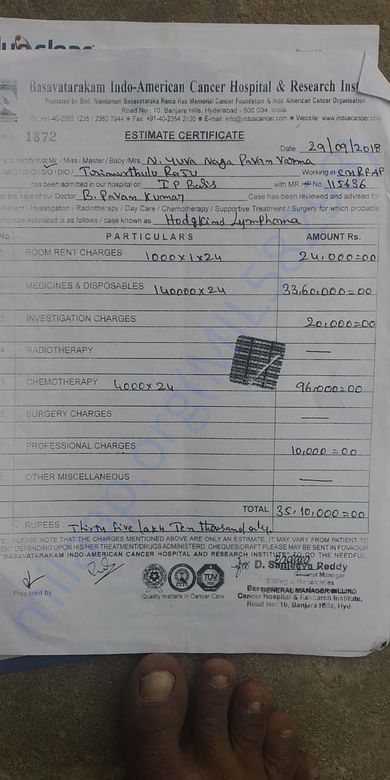 Basavatarakam Indo-American Cancer Hospital & Research Inst
Promoted by Smt. Nandamuri Basavataraka Rama Rao Memorial Cancer Foundation & Indo American Cancer Organisation
Road No : 10, Banjara Hills, Hyderabad - 500 034. India.
+91-40-2355 1235 / 2360 7944 Fax : +91-40-2354 2120 E-mail: info@induscancer.com Website: www.induscancer.co
1872
ESTIMATE CERTIFICATE
Date 29/09/2018
Mr / Miss / Master / Baby / Mrs N. Yuva Naga Pavan Varma
S/O / D/O Tirumurthulu Raju Working in
has been admitted in our hospital on I P Basis with MR No 115636
of our Doctor B. Pavan Kumar Case has been reviewed and advised for
Investigation / Radiotherapy / Day Care / Chemotherapy / Supportive Treatment / Surgery for which probable
estimated is as follows / case known as Hodgkins Lymphoma
No. PARTICULARS AMOUNT Rs.
ROOM RENT CHARGES 1000x1x24 24,000=00
MEDICINES & DISPOSABLES 140000x24 33,60,000=00
INVESTIGATION CHARGES 20,000=00
RADIOTHERAPY —
CHEMOTHERAPY 4000x24 96,000=00
SURGERY CHARGES —
PROFESSIONAL CHARGES 10,000=00
OTHER MISCELLANEOUS —
TOTAL 35,10,000=00
RUPEES Thirty five lakh Ten thousand only.
PLEASE NOTE THAT THE CHARGES MENTIONED ABOVE ARE ONLY AN ESTIMATE, IT MAY VARY FROM PATIENT TO
DEPENDING UPON HIS/HER TREATMENT/DRUGS ADMINISTERD. CHEQUES/DRAFT PLEASE MAY BE SENT IN FOVAOUR
"BASAVATARAKAM INDO-AMERICAN CANCER HOSPITAL AND RESEARCH INSTITUTE" TO DO THE NEEDFUL
D. Sanjeeva Reddy
General Manager
GENERAL MANAGER BILLING
Prepared by
TUV
Quality matters in Cancer Care
Cancer Hospital & Research Institute,
Road No: 10, Banjara Hills, Hyd